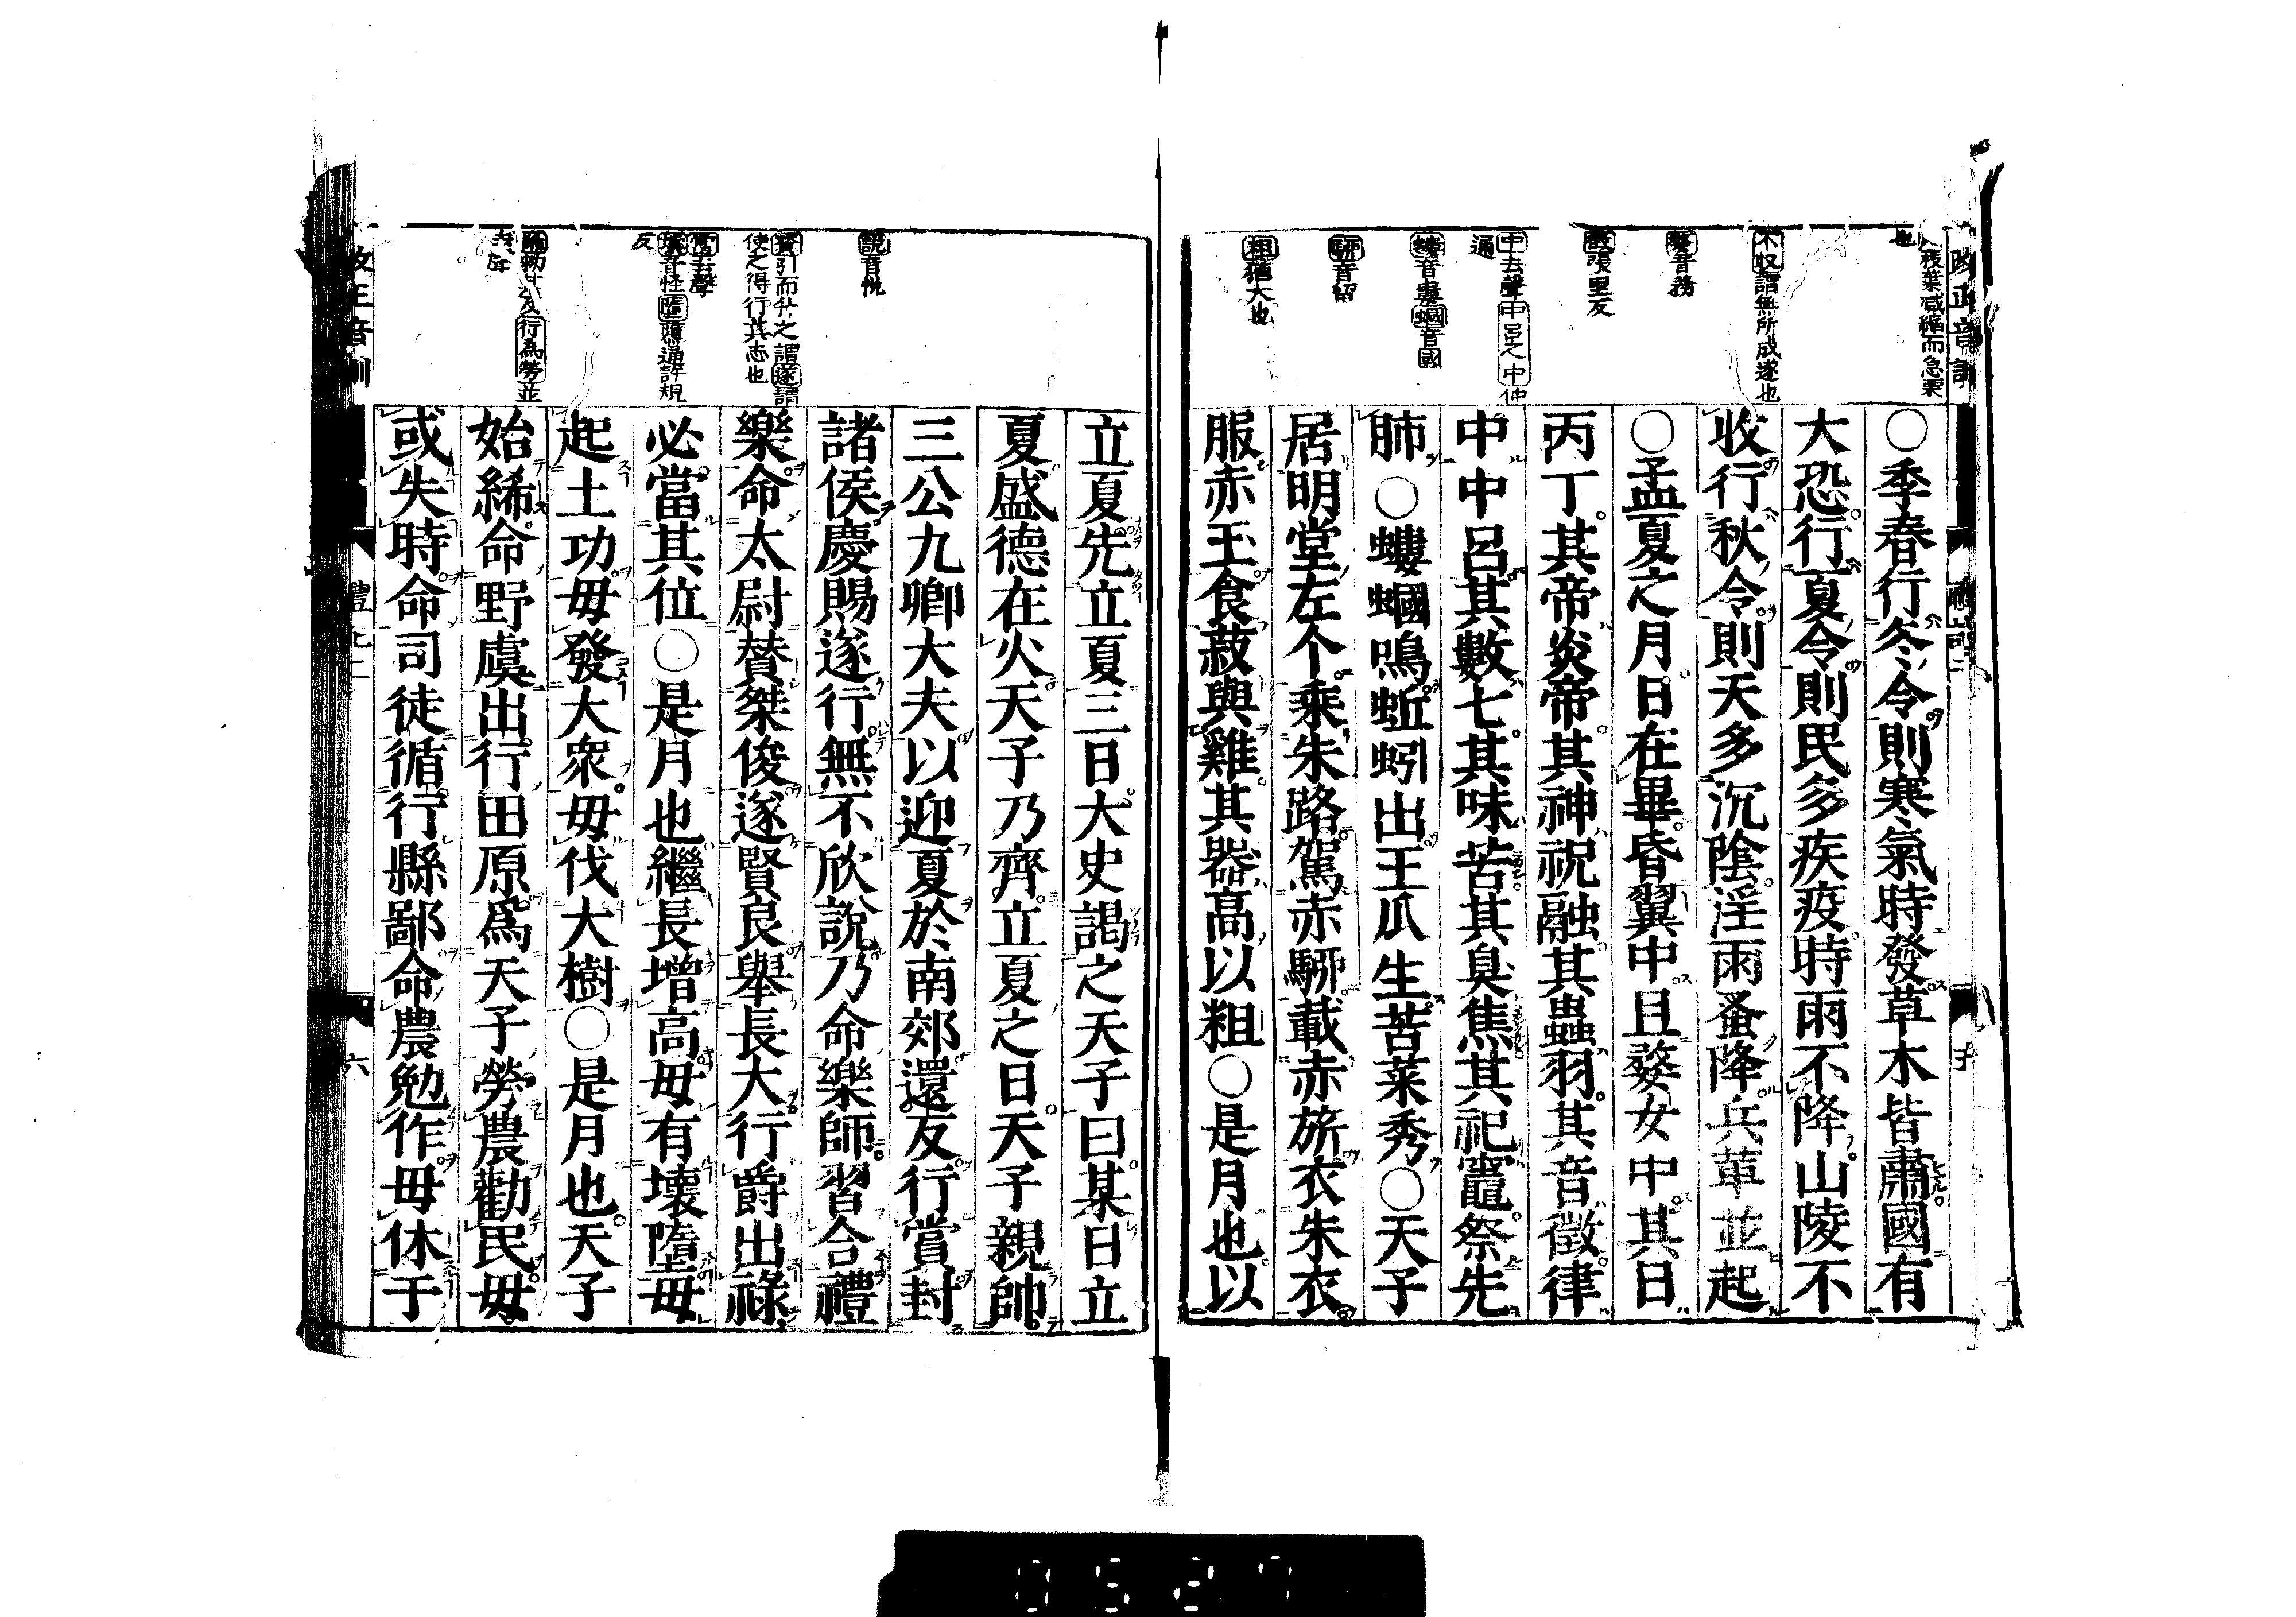 改正音訓
也
枝葉减縮而急栗
不収謂無所成遂也
婺音務
徵張里反
中去聲中呂之中仲
通
螻音婁蟈音國
駵音留
粗猶大也
○季春行冬令則寒氣時發草木皆肅國有
大恐行夏令則民多疾疫時雨不降山陵不
收行秋令則天多沉陰淫雨蚤降兵革並起
○孟夏之月日在畢昏翼中且婺女中其日
丙丁其帝炎帝其神祝融其蟲羽其音徵律
中中呂其數七其味苦其臭焦其祀竈祭先
肺○螻蟈鳴蚯蚓出王瓜生苦菜秀○天子
居明堂左个乘朱路駕赤駵載赤旂衣朱衣
服赤玉食菽與雞其器高以粗○是月也以
說音悅
贊引而升之謂遂謂
使之得行其志也
當去聲
壞音怪墮隳通許規
反
行爲勞並
立夏先立夏三日大史謁之天子曰某日立
夏盛德在火天子乃齊立夏之日天子親帥
三公九卿大夫以迎夏於南郊還反行賞封
諸侯慶賜遂行無不欣說乃命樂師習合禮
樂命太尉贊桀俊遂賢良舉長大行爵出祿
必當其位○是月也繼長增高毋有壞墮毋
起土功毋發大衆毋伐大樹○是月也天子
始絺命野虞出行田原爲天子勞農勸民毋
或失時命司徒循行縣鄙命農勉作毋休于
六
0527